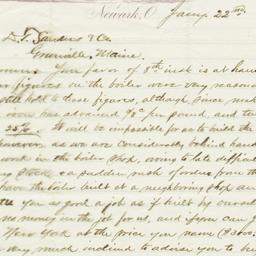 Newark, O. Jany. 22nd
D. T. Sanders & Co.
Greenville, Maine
Your favor of 8th inst is at han
figures on the boiler were very reasona
still hold to these figures, although since
iron has advanced per pound, and tu
25%. It will be impossible for us to build the
however, as we are considerably behind hand
work in the boiler shop, owing to late difficult
stock & a sudden rush of orders from th
have the boiler built at a neighboring shop an
you as good a job as if built by oursel
no money in the job for us, and if you can g
New York at the price you name ($3000
very much inclined to advise you to bu